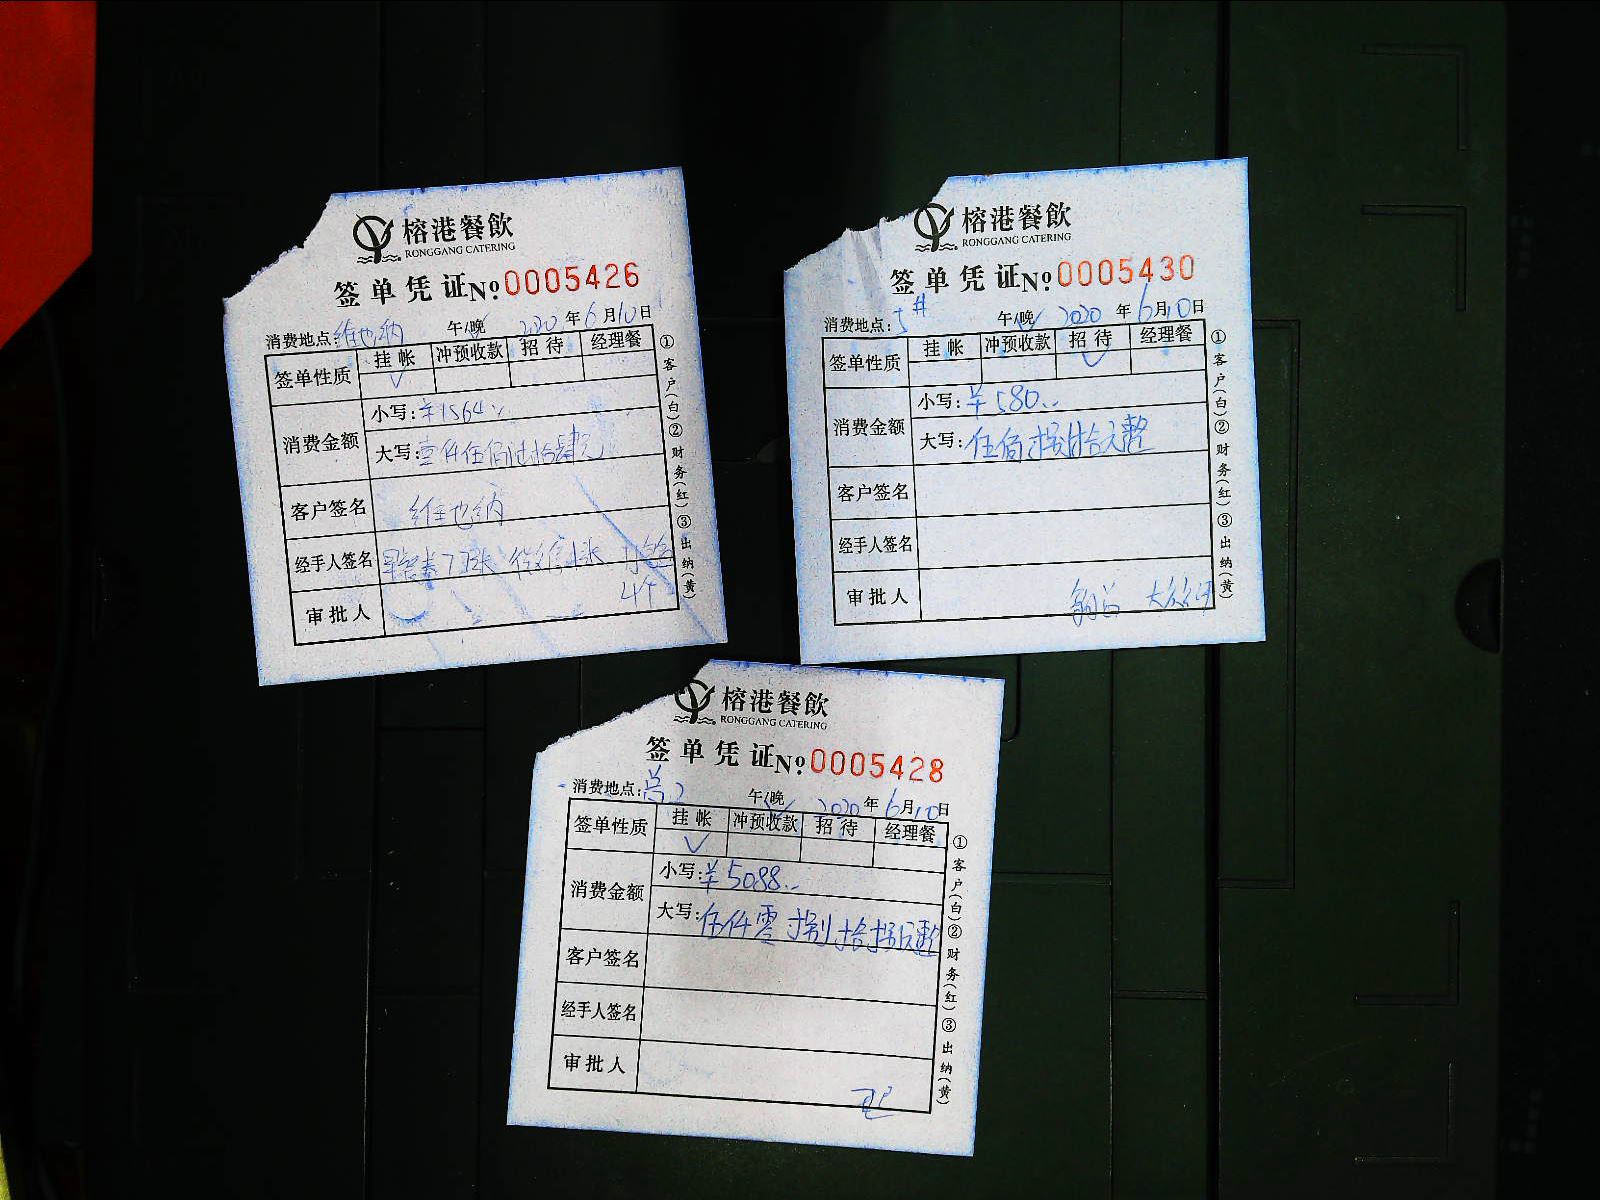 榕港餐飲
RONGGANG CATERING
签单凭证 No 0005426
消费地点:维也纳 午/晚 2020年6月10日
签单性质 挂帐 冲预收款 招待 经理餐
消费金额 小写:¥1564
大写:壹仟伍佰陆拾肆元
客户签名 维也纳
经手人签名
审批人
①客户(白)②财务(红)③出纳(黄)
榕港餐飲
RONGGANG CATERING
签单凭证 No 0005430
消费地点:5# 午/晚 2020年6月10日
签单性质 挂帐 冲预收款 招待 经理餐
消费金额 小写:¥580
大写:伍佰捌拾元整
客户签名
经手人签名
审批人
①客户(白)②财务(红)③出纳(黄)
榕港餐飲
RONGGANG CATERING
签单凭证 No 0005428
消费地点: 午/晚 2020年6月10日
签单性质 挂帐 冲预收款 招待 经理餐
消费金额 小写:¥5088
大写:伍仟零捌拾捌元整
客户签名
经手人签名
审批人
①客户(白)②财务(红)③出纳(黄)